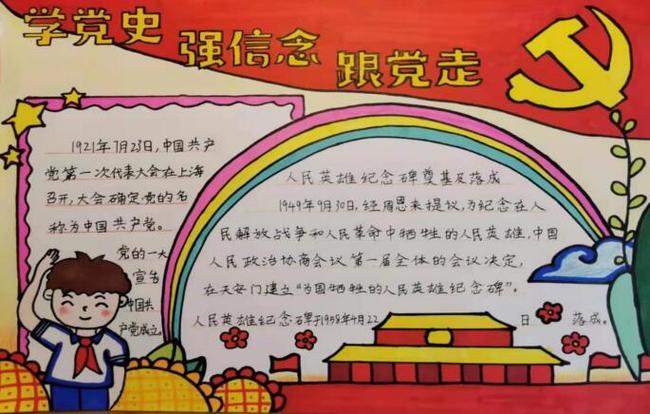 学党史
强信念
跟党走
1921年7月23日,中国共产
党第一次代表大会在上海
召开,大会确定党的名
称为中国共产党。
党的一大
宣告
中国共
产党成立
人民英雄纪念碑奠基及落成
1949年9月30日,经周恩来提议,为纪念在人
民解放战争和人民革命中牺牲的人民英雄,中国
人民政治协商会议第一届全体的会议决定,
在天安门建立“为国牺牲的人民英雄纪念碑”。
人民英雄纪念碑于1958年4月22日 落成。